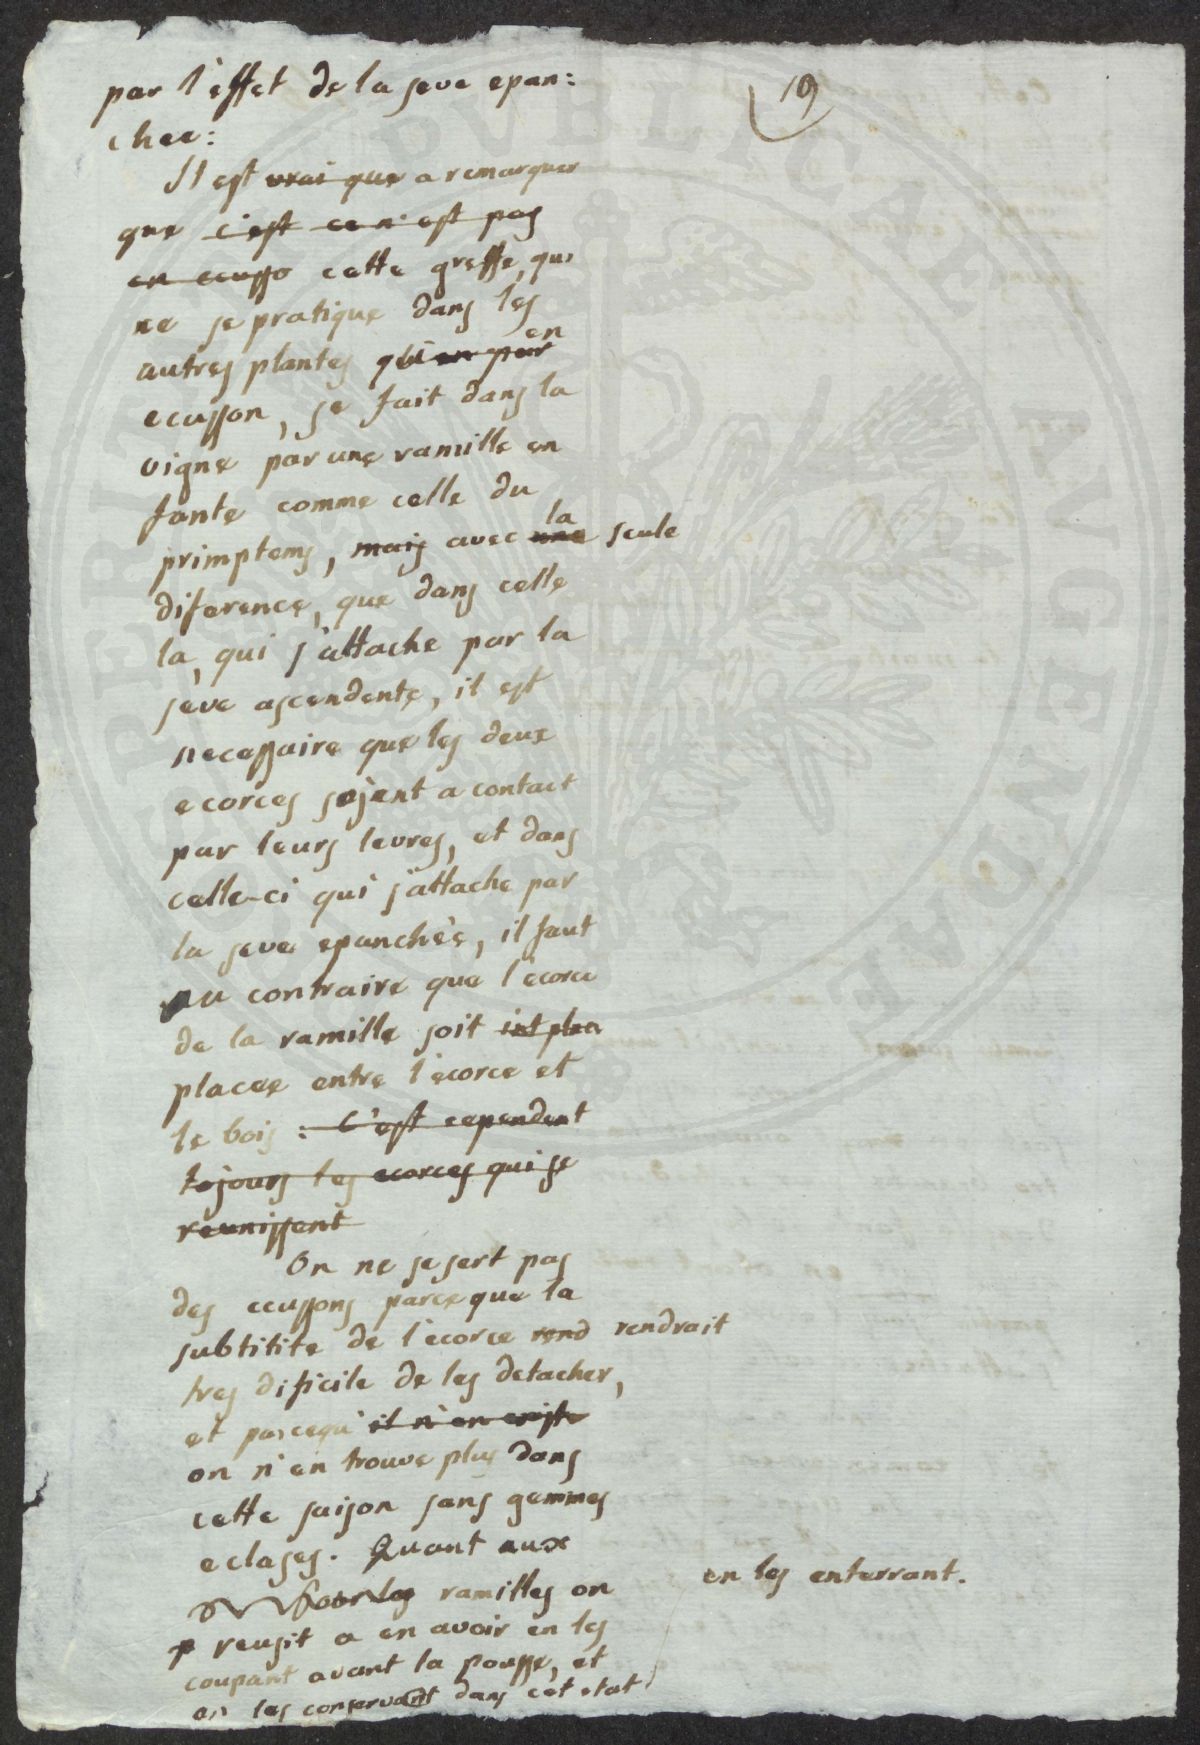 19
par l'effet de la seve epan:
chee:
Il est vrai que a remarquer
que c'est ce n'est pas
en ecusso cette greffe, qui
ne se pratique dans les
autres plantes qu'en par en
ecusson, se fait dans la
vigne par une ramille en
fante comme celle du
primptems, mais avec une la seule
diference, que dans celle
la, qui s'attache par la
seve ascendente, il est
necessaire que les deux
ecorces sojent a contact
par leurs levres, et dans
celle-ci qui s'attache par
la seve epanchée, il faut
au contraire que l'ecorce
de la ramille soit int placee
placee entre l'ecorce et
le bois : c'est cependent
tojours les ecorces qui se
reunissent
On ne se sert pas
des ecussons parce que la
subtitite de l'ecorce rend rendrait
tres dificile de les detacher,
et parcequ'il n'en existe
on n'en trouve plus dans
cette saison sans gemmes
eclases. Quant aux
ramilles on
p reusit a en avoir en les
coupant avant la pousse, et
en les conservant dans cet etat
en les enterrant.
PUBLICAE AUGENDAE